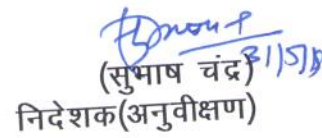 31/5/
(सुभाष चंद्र)
निदेशक(अनुवीक्षण)